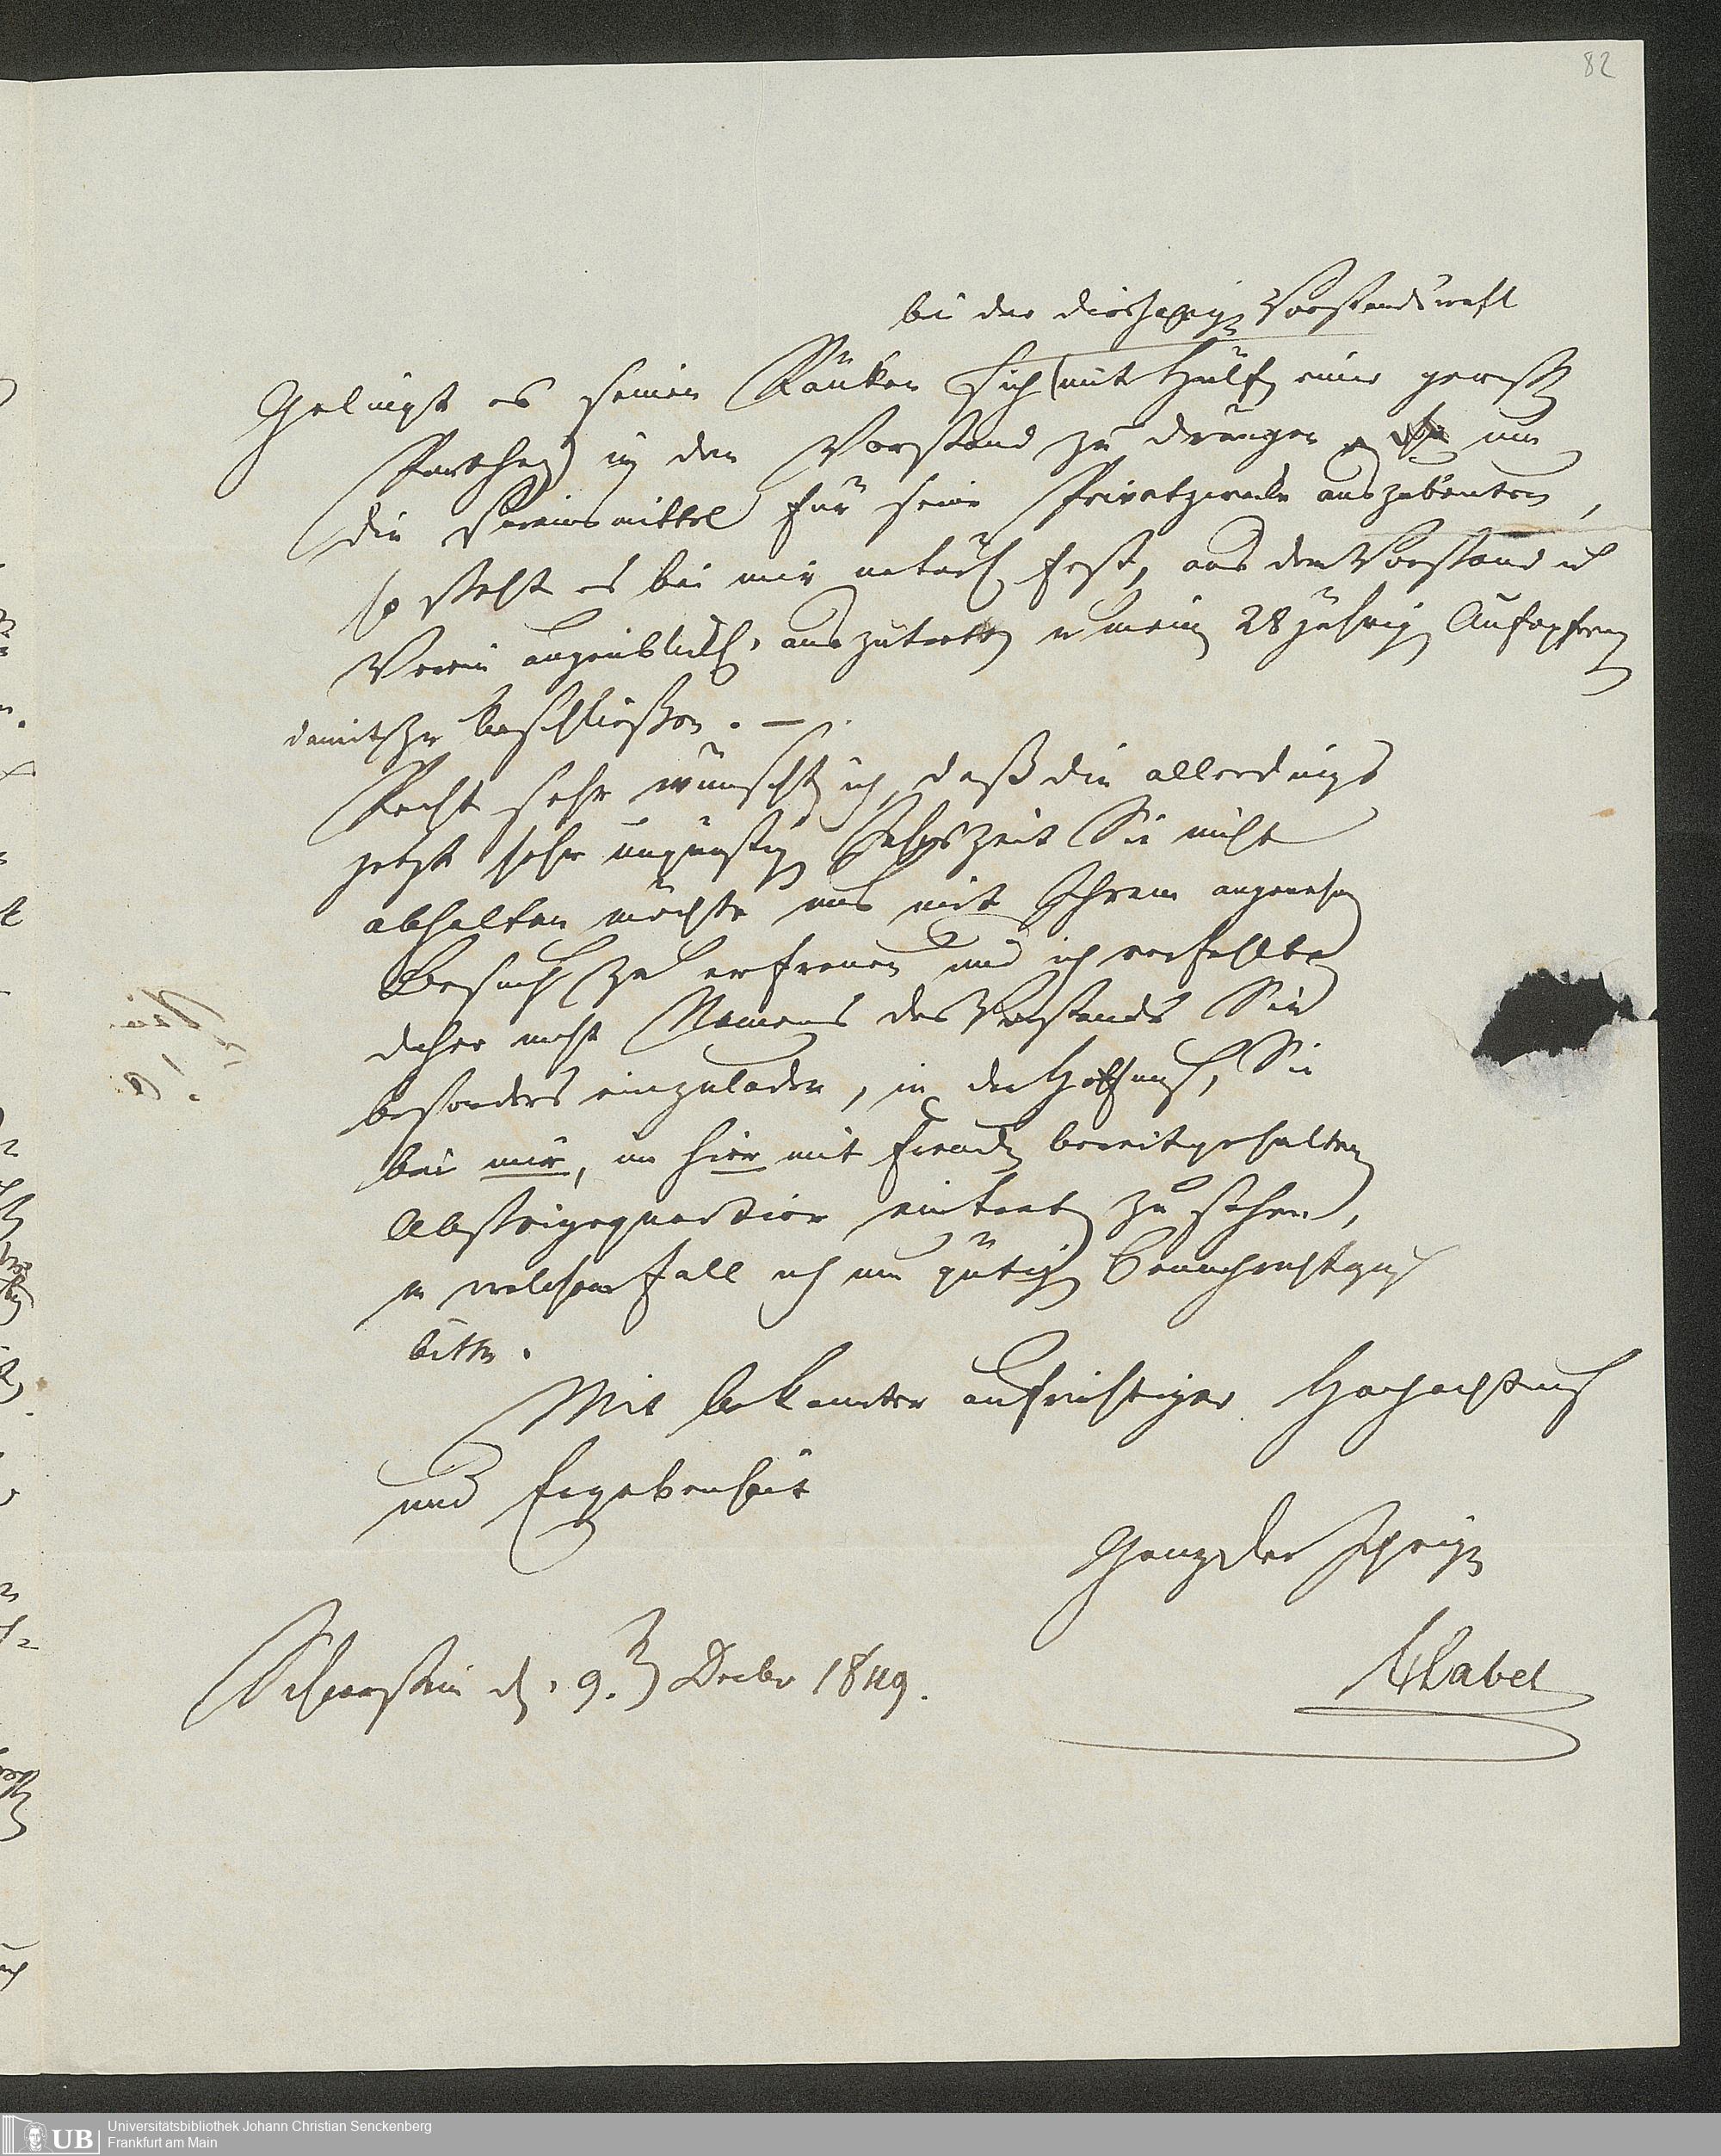 82
bei der diesjährigen Vorstandswahl
Gelingt es seinen Ränken sich (mit Hülfe einer gewissen
Parthei) in den Vorstand zu drängen, um
die Vereinsmittel für seine Privatzwecke auszubeuten,
so steht es bei mir fest, aus dem Vorstand u
Verein augenblickl. auszutreten u meine 28 jährige Aufopferung
damit zu beschließen. —.
Recht sehr wünschte ich, daß die allerdings
jetzt sehr ungünstige Jahrszeit Sie nicht
abhalten möchte uns mit Ihrem angenehmen
Besuch zu erfreuen und ich verfehlte
daher nicht Namens des Vorstands Sie
besonders einzuladen, in der Hoffnung, Sie
bei mir, im hier mit Freuden bereitgehaltenen
Absteigequartier eintreten zu sehen,
in welchem Fall ich um gütige Benachrichtigung
bitte.
Mit bekannter aufrichtiger Hochachtung
und Ergebenheit
Ganz der Ihrige
Habel
Schierstein d. 9. Decbr 1849.
UB
Universitätsbibliothek Johann Christian Senckenberg
Frankfurt am Main